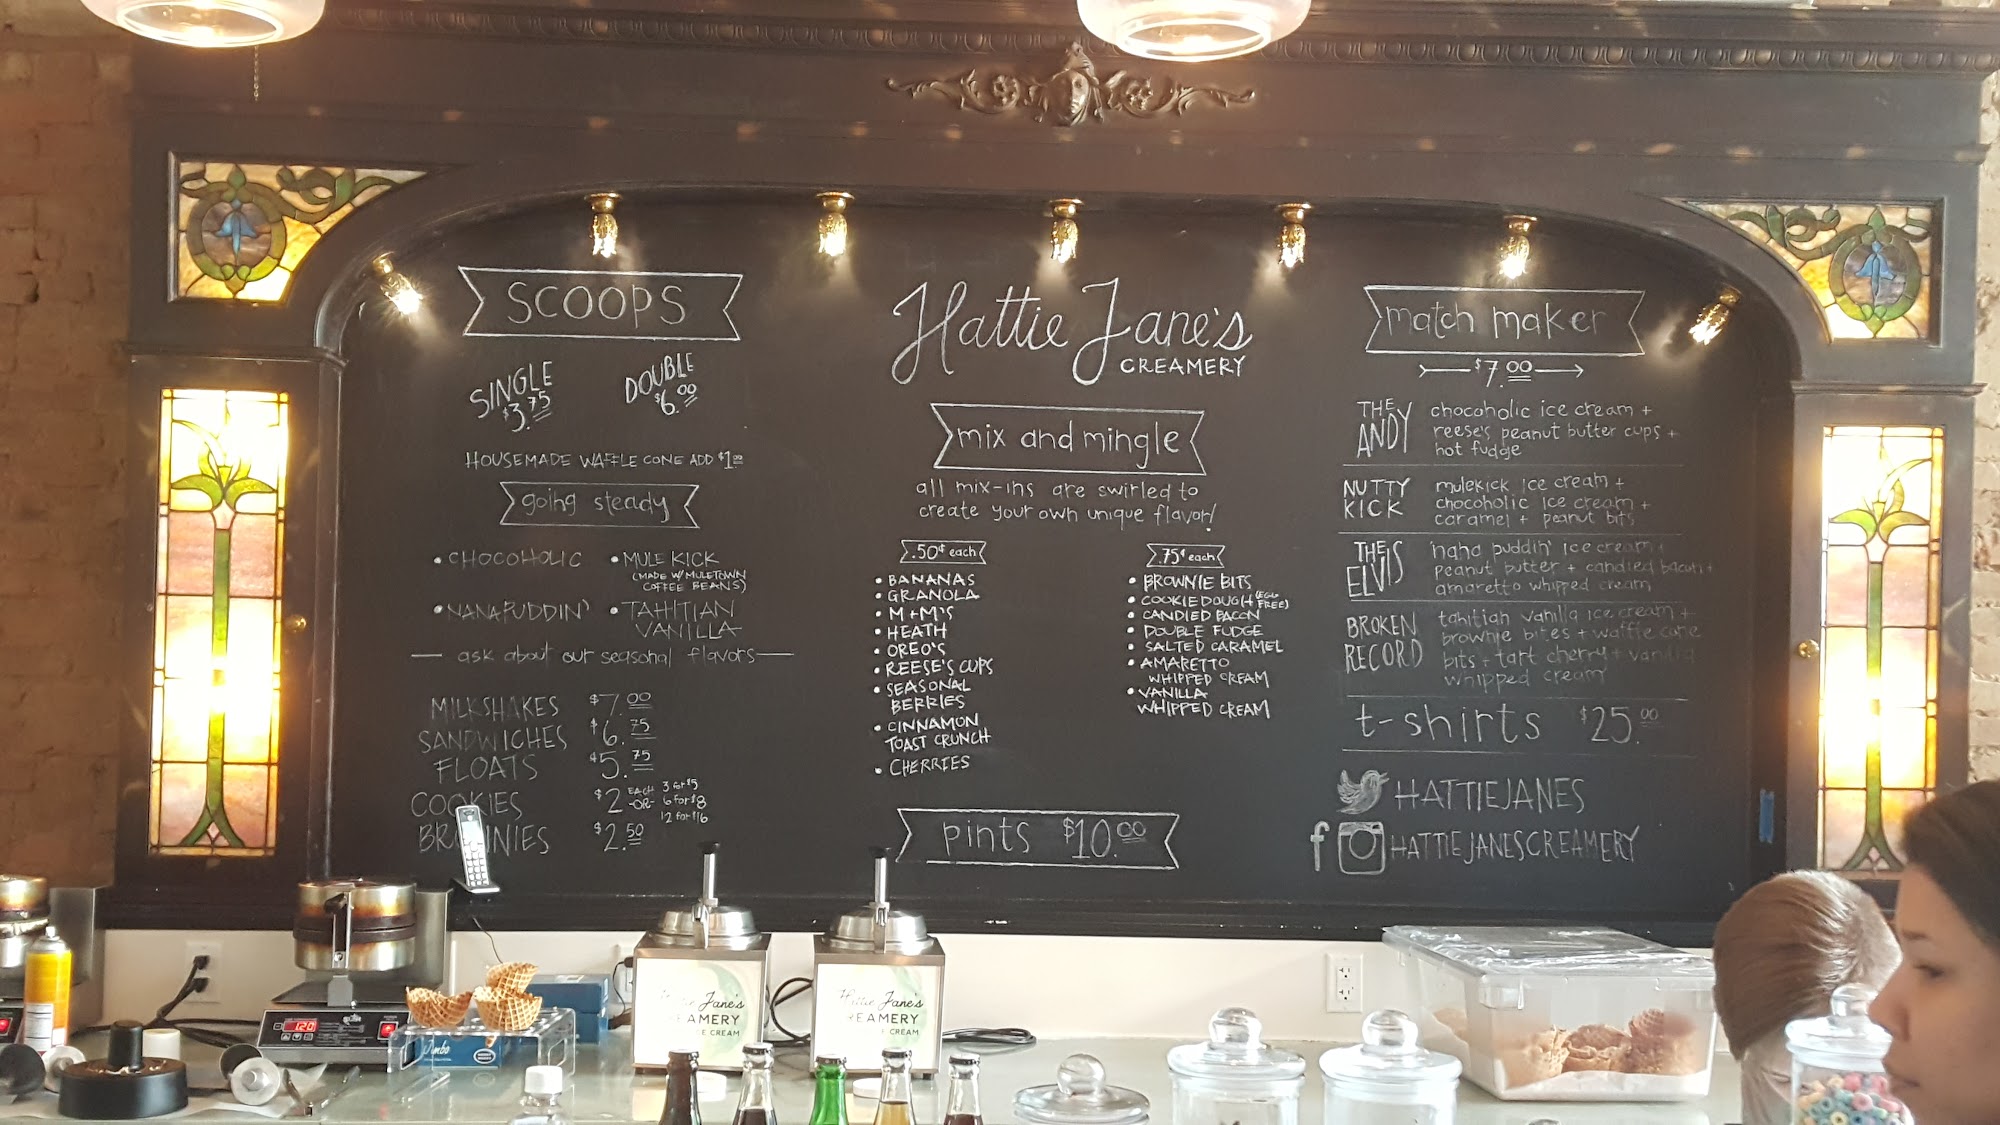 SCOOPS
SINGLE
$3.75
DOUBLE
$6.00
HOUSEMADE WAFFLE CONE ADD $1.00
going steady
• CHOCOHOLIC
• MULE KICK
(MADE W/ MULETOWN
COFFEE BEANS)
• NANAPUDDIN'
• TAHITIAN
VANILLA
ask about our seasonal flavors
MILKSHAKES $7.00
SANDWICHES $6.75
FLOATS $5.75
COOKIES $2 EACH -OR- 3 for $5
6 for $8
12 for $16
BROWNIES $2.50
Hattie Jane's
CREAMERY
mix and mingle
all mix-ins are swirled to
create your own unique flavor!
.50¢ each
• BANANAS
• GRANOLA
• M+M'S
• HEATH
• OREO'S
• REESE'S CUPS
• SEASONAL
BERRIES
• CINNAMON
TOAST CRUNCH
• CHERRIES
.75¢ each
• BROWNIE BITS
• COOKIE DOUGH (EGG FREE)
• CANDIED BACON
• DOUBLE FUDGE
• SALTED CARAMEL
• AMARETTO
WHIPPED CREAM
• VANILLA
WHIPPED CREAM
pints $10.00
match maker
$7.00
THE
ANDY
chocoholic ice cream +
reese's peanut butter cups +
hot fudge
NUTTY
KICK
mulekick ice cream +
chocoholic ice cream +
caramel + peanut bits
THE
ELVIS
'nana puddin' ice cream +
peanut butter + candied bacon +
amaretto whipped cream
BROKEN
RECORD
tahitian vanilla ice cream +
brownie bites + waffle cone
bits + tart cherry + vanilla
whipped cream
t-shirts $25.00
HATTIEJANES
f HATTIEJANESCREAMERY
120
Jane's
CREAM
Hattie Jane's
CREAM